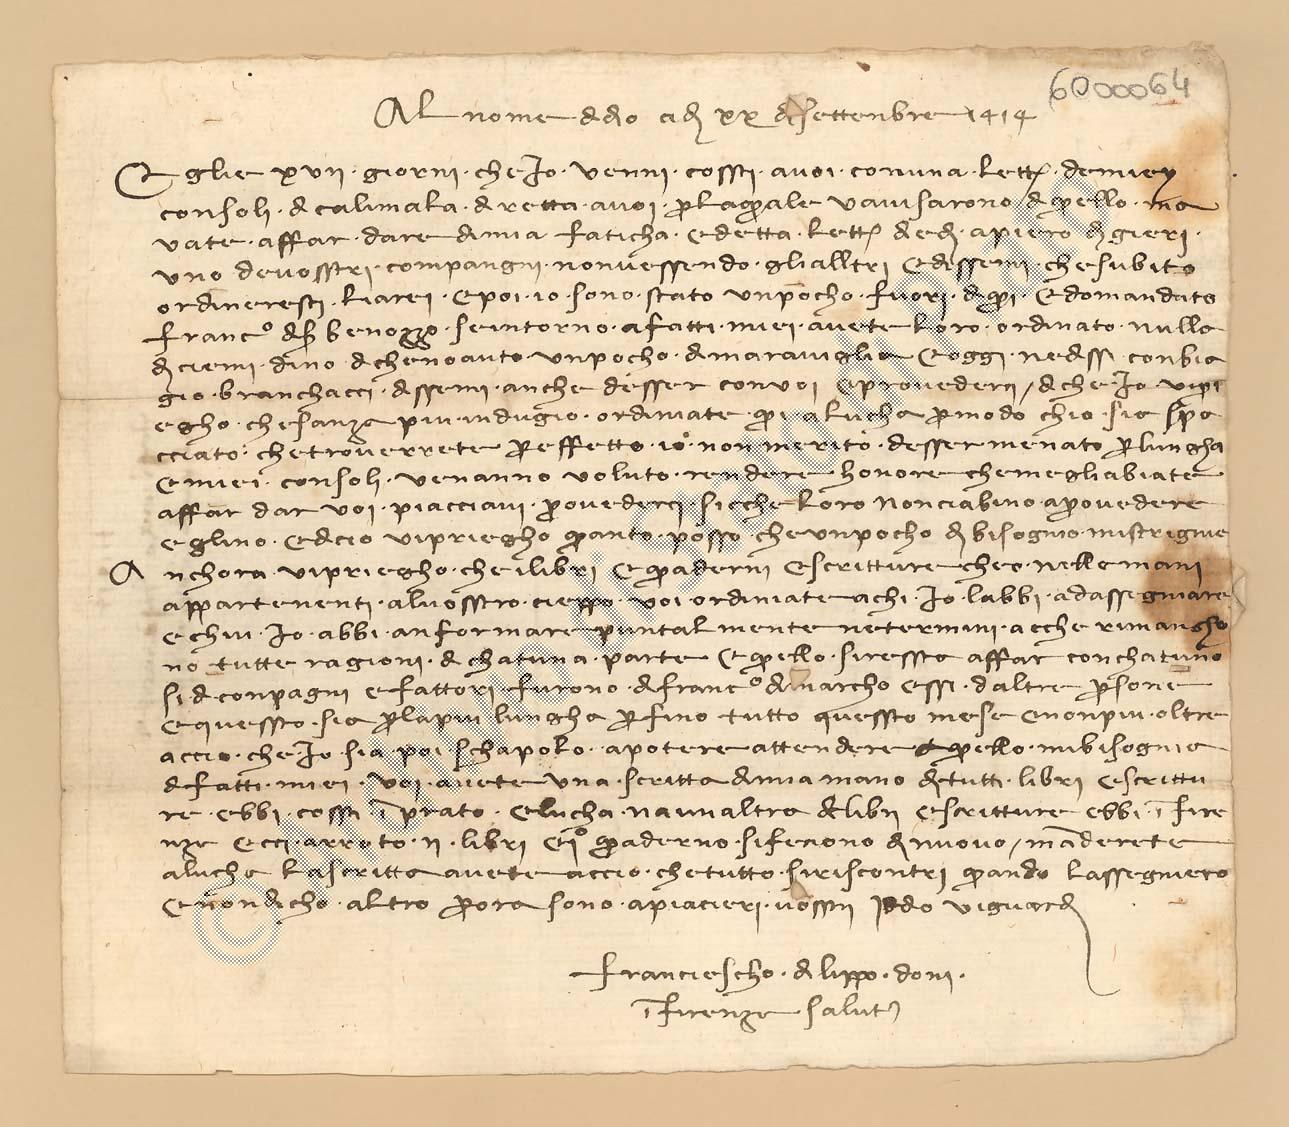 6000064
Al nome d dio a dì xx di settenbre 1414
Eglie xvii giorni che Io venni cossti a voi con una lettera de miey
consoli di calimala diretta a voi per la quale v avisarono di quello ma
vate affar dare di mia faticha e detta lettera diedi a piero di gieri
uno de vosstri compangni non v essendo gli alltri e dissemi che subito
ordineresti l arei e poi io sono stato un pocho fuori di qui e domandato
francesco di ser benozzo se intorno a fatti miei avete loro ordinato nulla
diciemi di no di che no auto un pocho di maraviglia e oggi nedissi con bia
gio branchacci dissemi anche d esser con voi e provederci / di che Io vi pri
egho che sanza piu indugio ordiniate qui a lucha per modo ch io sia spa
cciato che troverrete per effetto io non merito d esser menato per lungha
e miei consoli ve nanno voluto rendere honore che me gli abiate
affar dar voi piacciavi provederci sicche loro non ci abino a provedere
eglino e di cio vi priegho quanto posso che un pocho di bisogno mi strignie
Anchora vi priegho che i libri e quaderni e scritture che o nelle mani
appartenenti al vosstro cieppo voi ordiniate a chi Io l abbi ad assegniare
e chui Io abbi a nformare puntalmente ne termini a cche rimangho
no tutte ragioni di chatuna parte e quello si ressta affar con chatuno
si di conpagni e fattori furono di francesco di marcho e ssi d altre persone
e quessto sia per la piu lungha per fino tutto quessto mese e non piu oltre
accio che Io sia poi schapolo a potere attendere a quello mi bisognia
di fatti miei voi avete una scritta di mia mano di tutti libri e scrittu
re ebbi cossti in prato e lucha n a un altra di libri e scritture ebbi in fire
nze e cci arroto ii libri e i° quaderno si feciono di nuovo / manderete
a lucha la scritta avete accio che tutto si riscontri quando l assegniero
e non dicho altro per ora sono a piacieri vosstri Iddo vi guardi
franciescho di lippo doni
in firenze salute